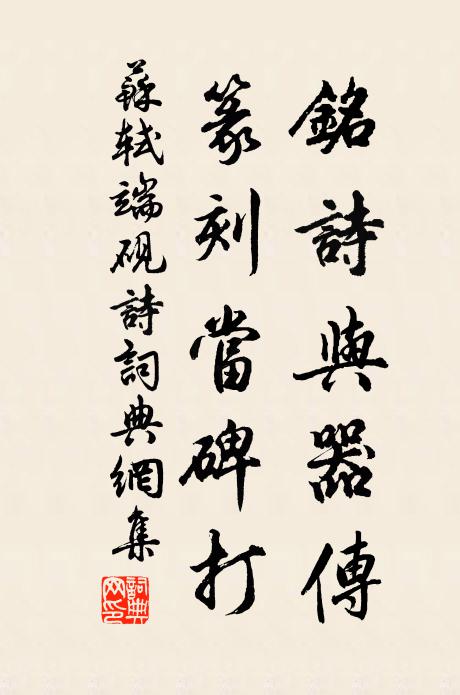 銘詩與器傳
篆刻當碑打
蘇軾端硯詩詞典網集